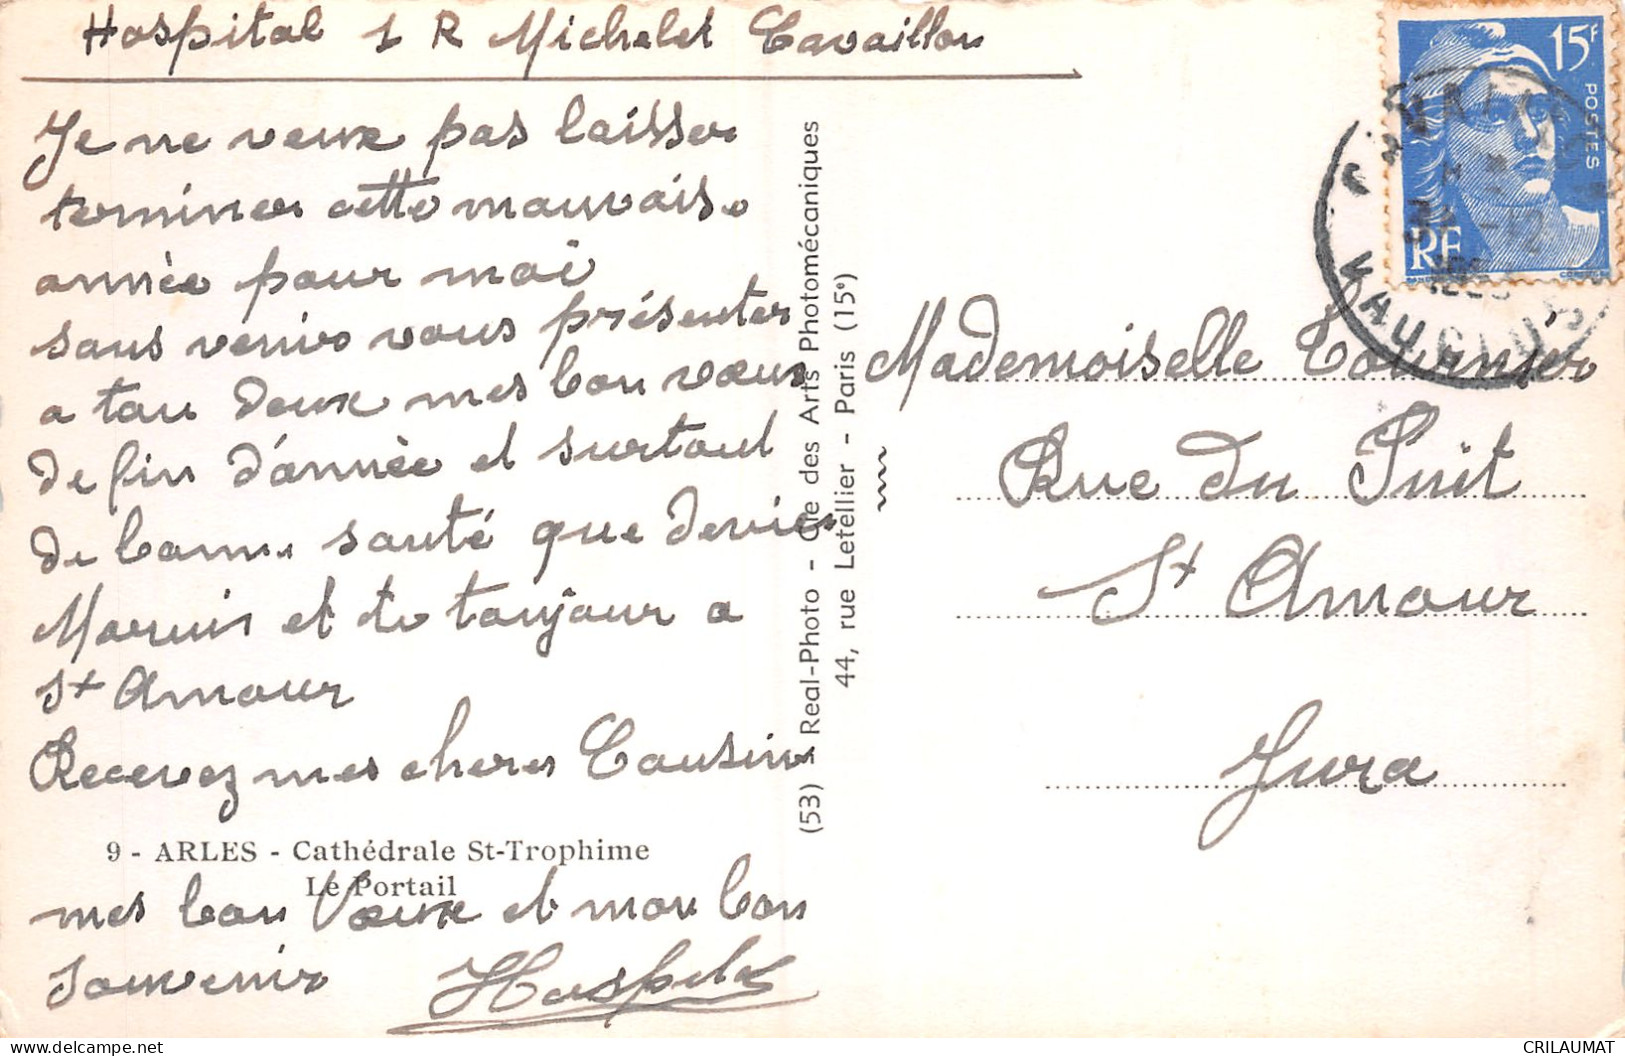 Hospital 1 R Michelet Cavaillon
Je ne veux pas laisser
terminer cette mauvaise
année pour moi
sans venir vous présenter
a tou deux mes bon vœux
de fin d'année et surtout
de bonne santé que
et toujour a
St Amour
Recevez mes cheres Cousine
9 - ARLES - Cathédrale St-Trophime
Le Portail
mes bon Vœux et mon bon
souvenir
(53) - Real-Photo - Cie des Arts Photomécaniques
44, rue Letellier - Paris (15e)
15F
POSTES
RF
VAUCLUSE
Mademoiselle Tournier
Rue du Puit
St Amour
Jura
CRILAUMAT